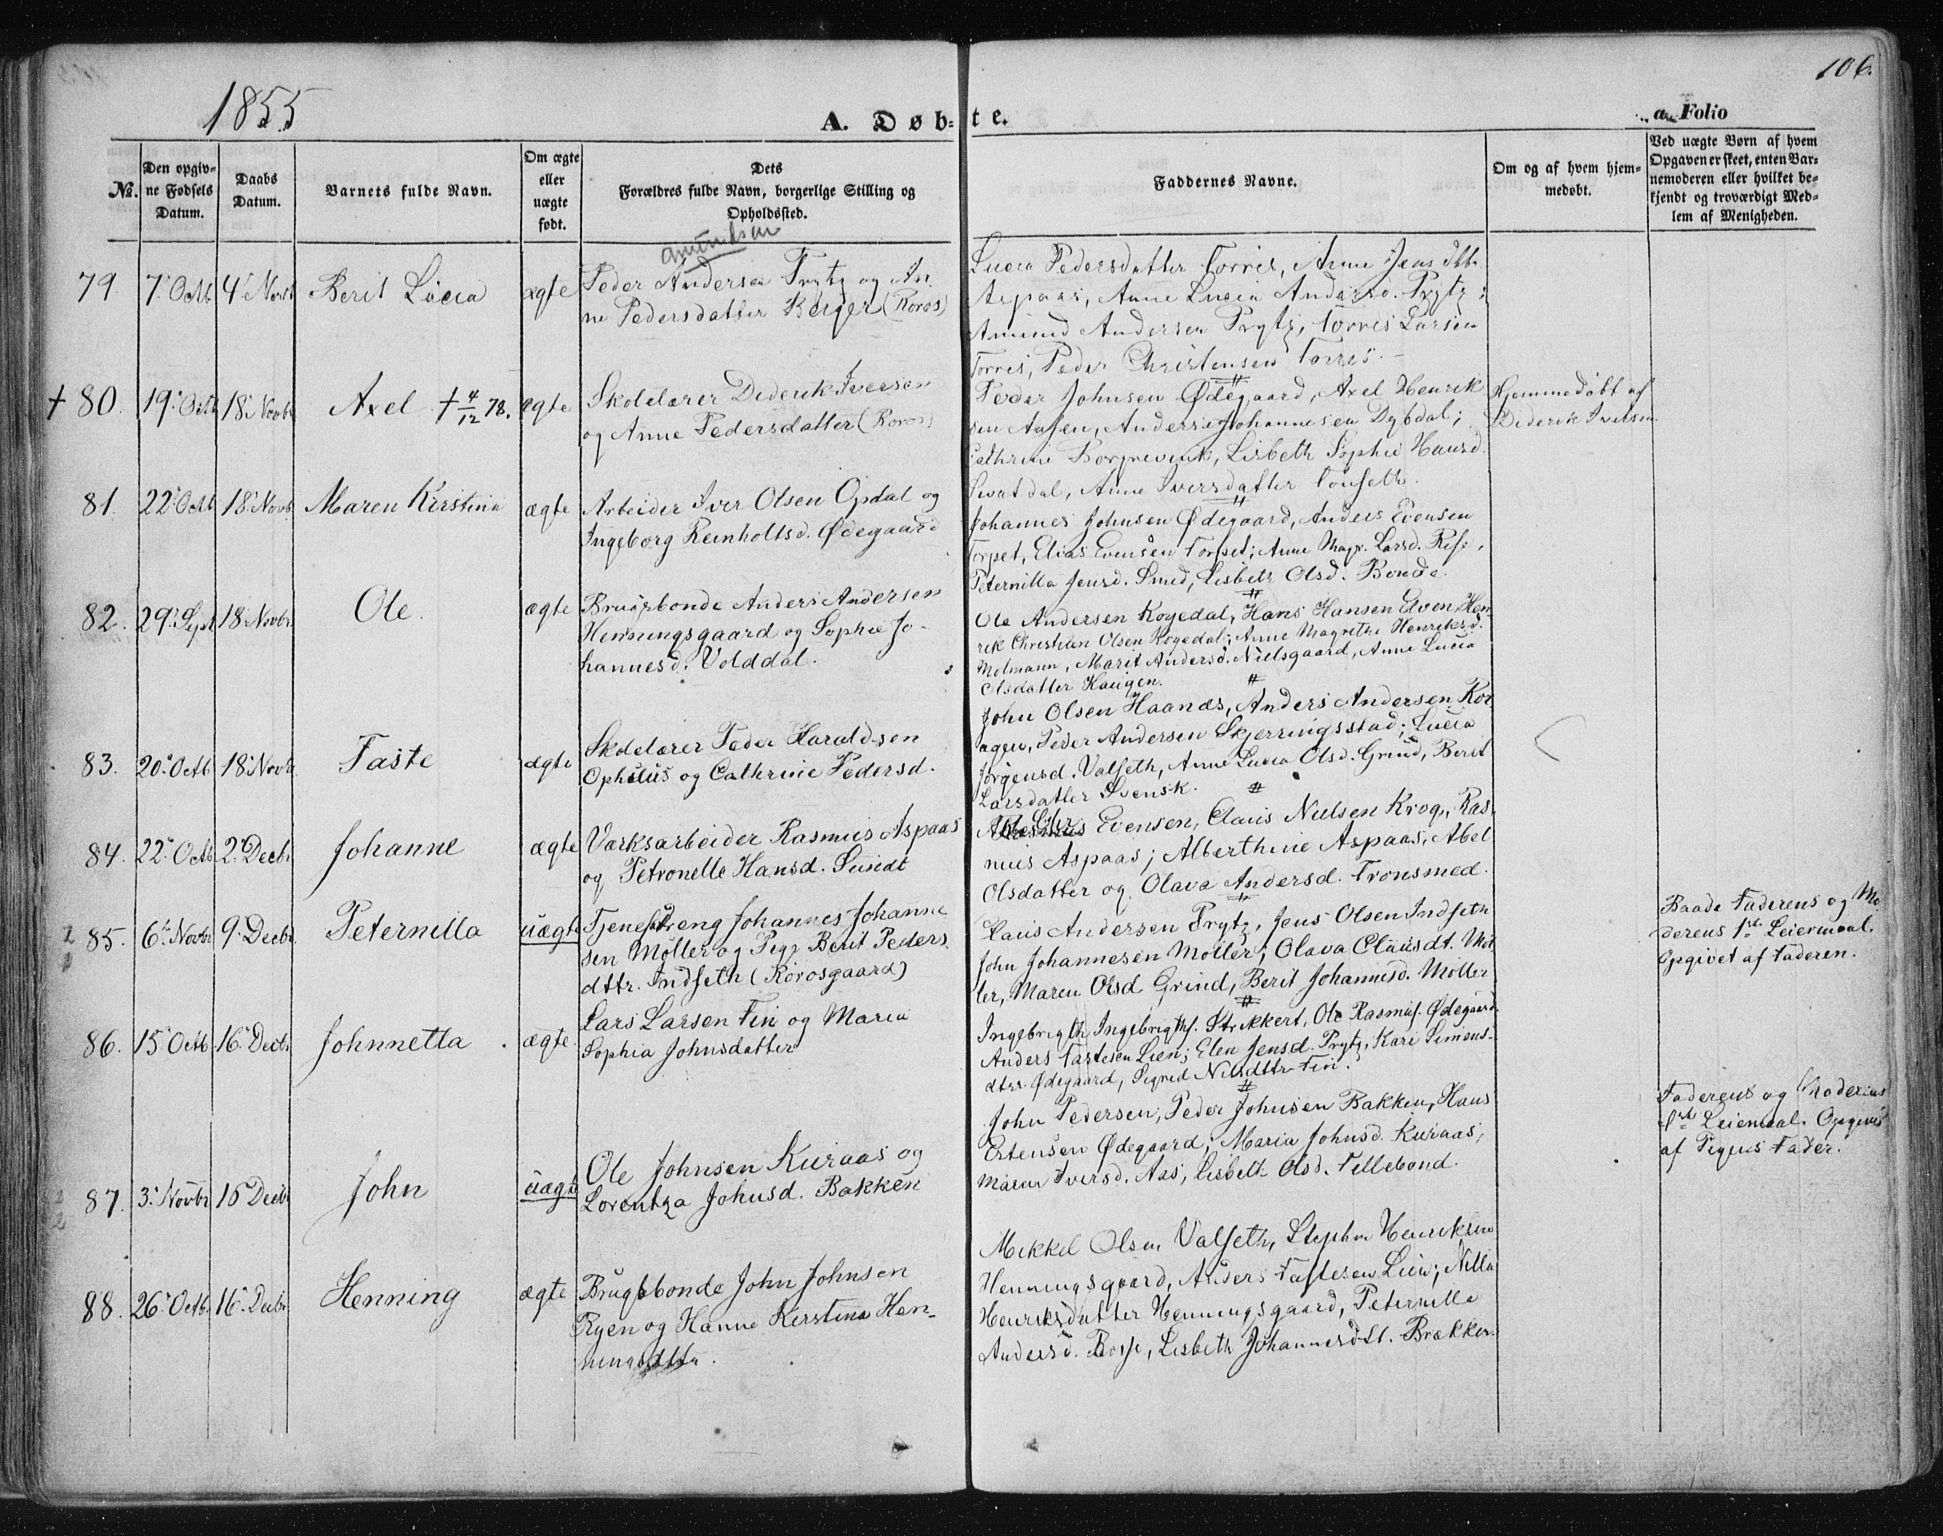 1855
106.
A. Døb-te.
a. Folio
No.
Den opgiv-
ne Fødsels
Datum.
Daabs
Datum.
Barnets fulde Navn.
Om ægte
eller
uægte
født.
Dets
Forældres fulde Navn, borgerlige Stilling og
Opholdssted.
Faddernes Navne.
Om og af hvem hjem-
medøbt.
Ved uægte Børn af hvem
Opgaven er skeet, enten Bar-
nemoderen eller hvilket be-
kjendt og troværdigt Med-
lem af Menigheden.
79. 7. Octb. 4. Novb. Berit Lucia ægte
Amundsen
Peder Andersen Prytz og An-
ne Pedersdatter Berger (Røros)
Lucia Pedersdatter Torres, Anne Jens dtt.
Aspaas, Anne Lucia Andersd. Prytz;
Amund Andersen Prytz, Torres Larsen
Torres, Peder Christensen Torres.
† 80. 19. Octb. 18. Novbr. Axel † 4/12 78. ægte
Skolelærer Diderik Iversen
og Anne Pedersdatter (Røros)
Peder Johnsen Ødegaard, Axel Henrik
sen Aasen, Anders Johannesen Dybdal;
Cathrine Borgrevink, Lisbeth Sophie Hansd.
dal, Anne Iversdatter Tonseth.
Hjemmedøbt af
Diderik Iversen
81. 22. Octb. 18. Novb. Maren Kirstina ægte
Arbeider Iver Olsen Opdal og
Ingeborg Reinholtsd. Ødegaard
Johannes Johnsen Ødegaard, Anders Evensen
Torpet, Elias Evensen Torpet; Anne Magr. Larsd. Rise,
Peternilla Jensd. Smed, Lisbeth Olsd. Bonde.
82. 29. Sept. 18. Novbr. Ole. ægte
Brugsbonde Anders Andersen
Henningsgaard og Sophie Jo-
hannesd. Volddal.
Ole Andersen Kogedal, Hans Hansen Elven, Hen-
rik Christian Olsen Kogedal; Anne Magrethe Henriksd.
Molmann, Marit Andersd. Nielsgaard, Anne Lucia
Olsdatter Haugen.
83. 20. Octb. 18. Novbr. Faste ægte
Skolelærer Peder Haraldsen
Ophuus og Cathrine Pedersd.
John Olsen Haanæs, Anders Andersen Kor-
agen, Peder Andersen Skjerringsstad; Lucia
Jørgensd. Valseth, Anne Lucia Olsd. Grind, Berit
Larsdatter Svensk.
84. 22. Octb. 2. Decbr. Johanne ægte
Værksarbeider Rasmus Aspaas
og Petronelle Hansd. Sundt
Evensen, Claus Nielsen Krog, Ras-
mus Aspaas; Alberthine Aspaas, Abel
Olsdatter og Olava Andersd. Tronsmed.
85. 6. Novbr. 9. Decbr. Peternilla uægte
Tjenestdreng Johannes Johanne
sen Møller og Pige Berit Peders
dttr. Indseth (Rørosgaard)
Claus Andersen Prytz, Jens Olsen Indseth
John Johannesen Møller; Olava Clausdt. Møl-
ler, Maren Olsd Grind, Berit Johannesd. Møller
Baade Faderens og Mo-
derens 1ste Leiermaal.
Opgivet af Faderen.
86. 15. Octb. 16. Decbr. Johnnetta ægte.
Lars Larsen Fin og Maria
Sophia Johnsdatter
Ingebrigth Ingebrigths. Strikkert, Ole Rasmus. Ødegaard.
Anders Fastesen Lien; Elen Jensd. Prytz, Kari Simens-
dttr. Ødegaard, Sigrid Nilsdttr Fin.
87. 3. Novbr. 16 Decbr. John uægte
Ole Johnsen Kuraas og
Lorentza Johnsd. Bakken
John Pedersen, Peder Johnsen Bakken, Hans
Estensen Ødegaard; Maria Johnsd. Kuraas,
Maren Iversd. Aas, Lisbet Olsd. Fellebond.
Faderens og Moderens
1ste Leiermaal. Opgivet
af Pigens Fader.
88. 26. Octb. 16. Decbr. Henning ægte
Brugsbonde John Johnsen
Ryen og Hanne Kirstina Hen-
ningsdttr.
Mikkel Olsen Valseth, Stephen Henriksen
Henningsgaard, Anders Fastesen Lien; Nilla
Henriksdatter Henningsgaard, Peternille
Andersd. Bosse, Lisbeth Johannesdtt. Brækken.